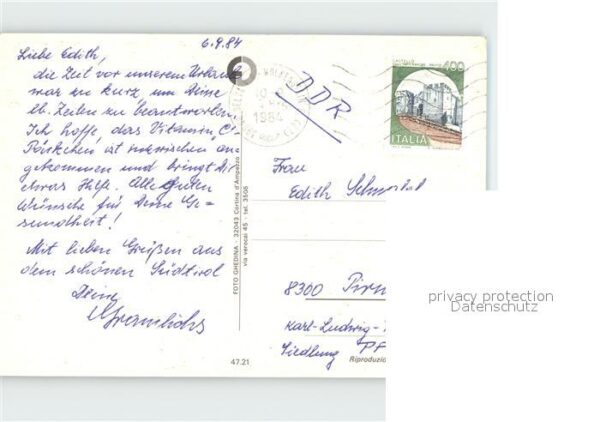 6.9.84
Liebe Edith,
die Zeit vor unserem Urlaub
war zu kurz, um Deine
lb. Zeilen zu beantworten.
Ich hoffe, das Vitamin "C"
Päckchen ist inzwischen an-
gekommen und bringt Dir
etwas Hilfe. Alle guten
Wünsche für Deine Ge-
sundheit!
Mit lieben Grüßen aus
dem schönen Südtirol
Deine
DDR
1984
CASTELLO
400
ITALIA
Frau
Edith
8300 Pirn
Karl-Ludwig-
Siedlung
FOTO GHEDINA - 32043 Cortina d'Ampezzo
via verocai 45 - tel. 3508
47.21
Riproduzio
privacy protection
Datenschutz